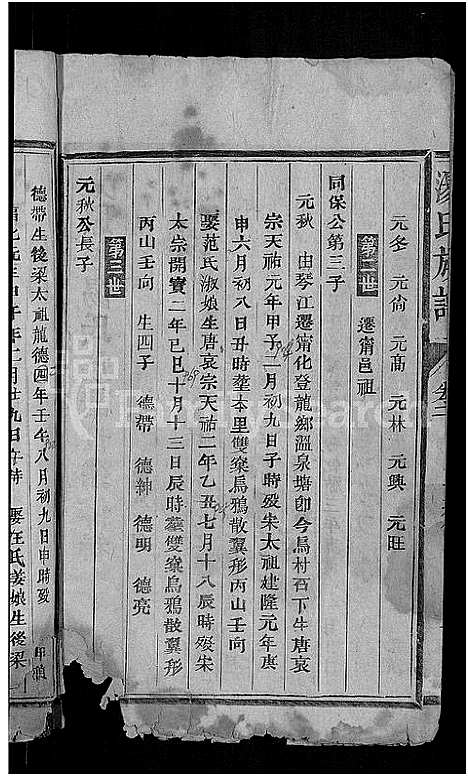 湯氏族譜 卷二
元多 元尙 元髙 元林 元興 元旺
第二世 遷甯邑祖
同保公第三子
元秋 由琴江遷甯化登龍鄉溫泉塘卽今烏村石下生唐哀
宗天祐元年甲子二月初九日子時歿朱太祖建隆元年庚
申六月初八日丑時塟本里雙燊烏鴉散翼形丙山壬向
娶范氏淑娘生唐哀宗天祐二年乙丑七月十八辰時歿宋
太宗開寳二年已巳十月十三日辰時塟雙燊烏鴉散翼形
丙山壬向 生四子 德帶 德紳 德明 德亮
第三世
元秋公長子
德帶生後梁太祖龍德四年壬午八月初九日申時歿
月廿九日午時 娶汪氏姜娘生後梁